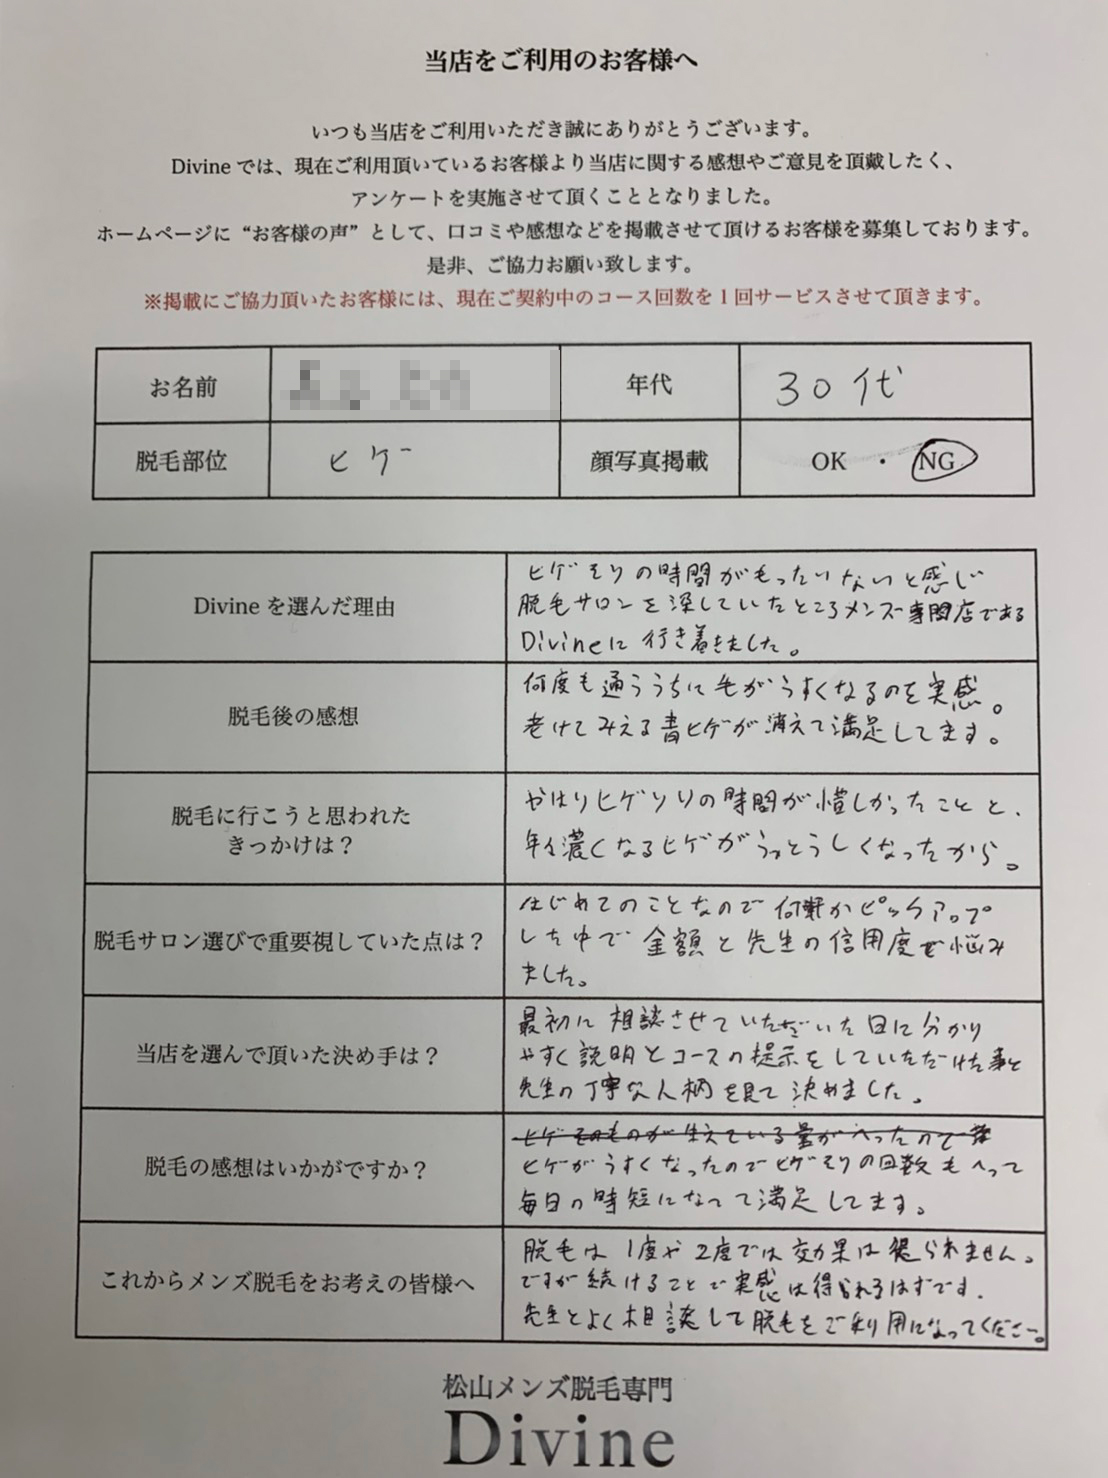 当店をご利用のお客様へ
いつも当店をご利用いただき誠にありがとうございます。
Divineでは、現在ご利用頂いているお客様より当店に関する感想やご意見を頂戴したく、
アンケートを実施させて頂くこととなりました。
ホームページに“お客様の声”として、口コミや感想などを掲載させて頂けるお客様を募集しております。
是非、ご協力お願い致します。
※掲載にご協力頂いたお客様には、現在ご契約中のコース回数を1回サービスさせて頂きます。
お名前
年代
30代
脱毛部位
ヒゲ
顔写真掲載
OK ・ NG
Divineを選んだ理由
ヒゲそりの時間がもったいないと感じ
脱毛サロンを探していたところメンズ専門店である
Divineに行き着きました。
脱毛後の感想
何度も通ううちに毛がうすくなるのを実感。
老けてみえる青ヒゲが消えて満足してます。
脱毛に行こうと思われた
きっかけは？
やはりヒゲソリの時間が惜しかったことと、
年々濃くなるヒゲがうっとうしくなったから。
脱毛サロン選びで重要視していた点は？
はじめてのことなので何軒かピックアップ
した中で金額と先生の信用度で悩み
ました。
当店を選んで頂いた決め手は？
最初に相談させていただいた日に分かり
やすく説明とコースの提示をしていただけた事と
先生の丁寧な人柄を見て決めました。
脱毛の感想はいかがですか？
ヒゲそのものが生えている量がへったので
ヒゲがうすくなったのでヒゲそりの回数もへって
毎日の時短になって満足してます。
これからメンズ脱毛をお考えの皆様へ
脱毛は1度や2度では効果は得られません。
ですが続けることで実感は得られるはずです。
先生とよく相談して脱毛をご利用になってください。
松山メンズ脱毛専門
Divine